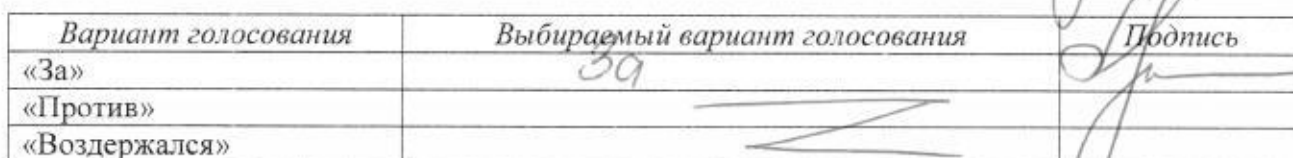 Вариант голосования Выбираемый вариант голосования Подпись
«За» За
«Против»
«Воздержался»